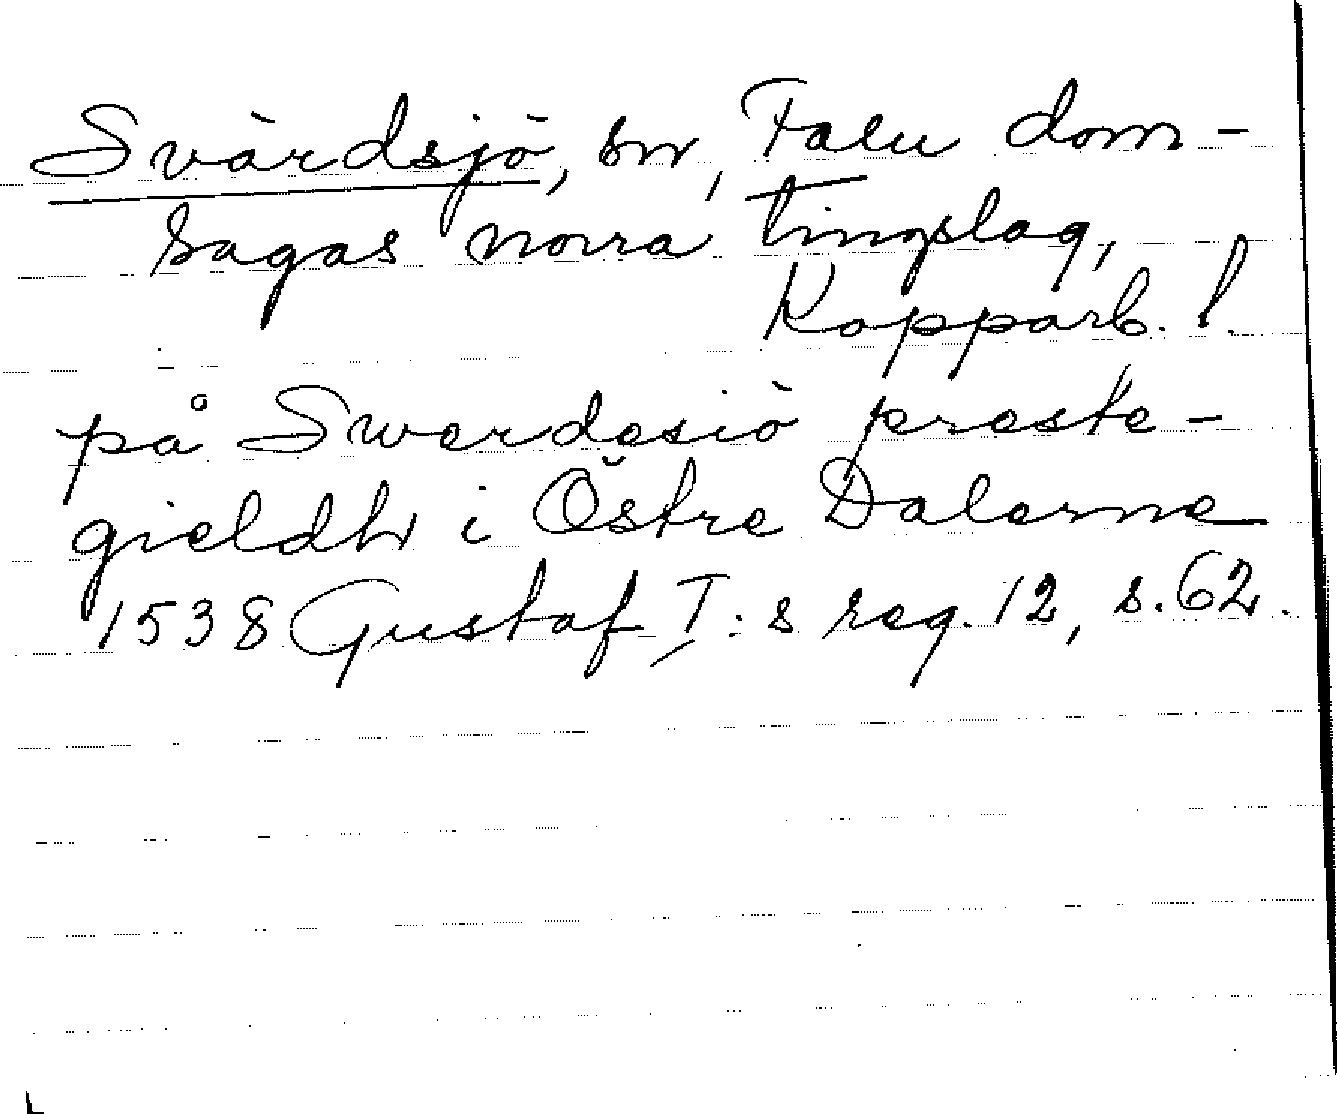 Svärdsjö, sn, Falu dom-
sagas norra tingslag,
Kopparb. l.
på Swerdesiö preste-
gieldh i Östre Dalerne
1538 Gustaf I:s reg. 12, s. 62.